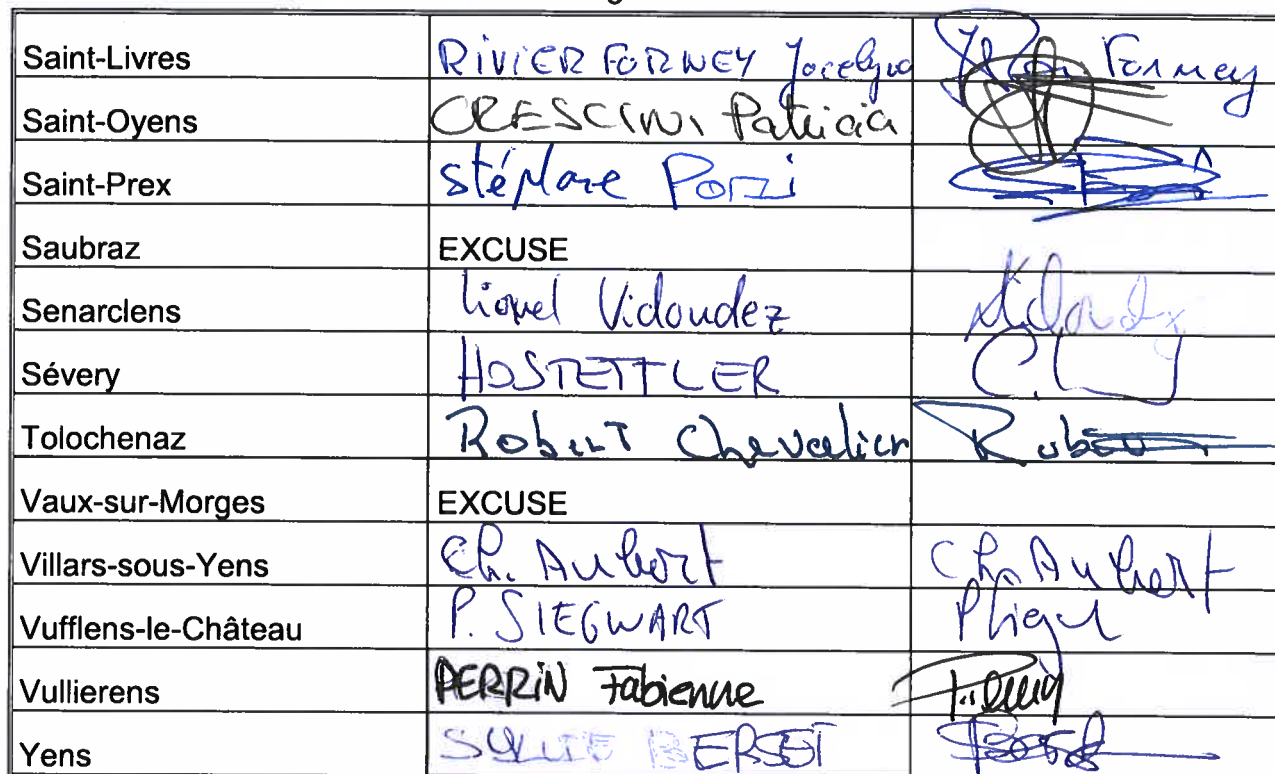 Saint-Livres RIVIER FORNEY Jocelyne Forney
Saint-Oyens CRESCINI Patricia
Saint-Prex stéphane Porzi
Saubraz EXCUSE
Senarclens Lionel Vidoudez
Sévery HOSTETTLER C.
Tolochenaz Robert Chevalier Robert
Vaux-sur-Morges EXCUSE
Villars-sous-Yens Ch. Aubert Ch. Aubert
Vufflens-le-Château P. SIEGWART
Vullierens PERRIN Fabienne
Yens SYLVIE BERSET